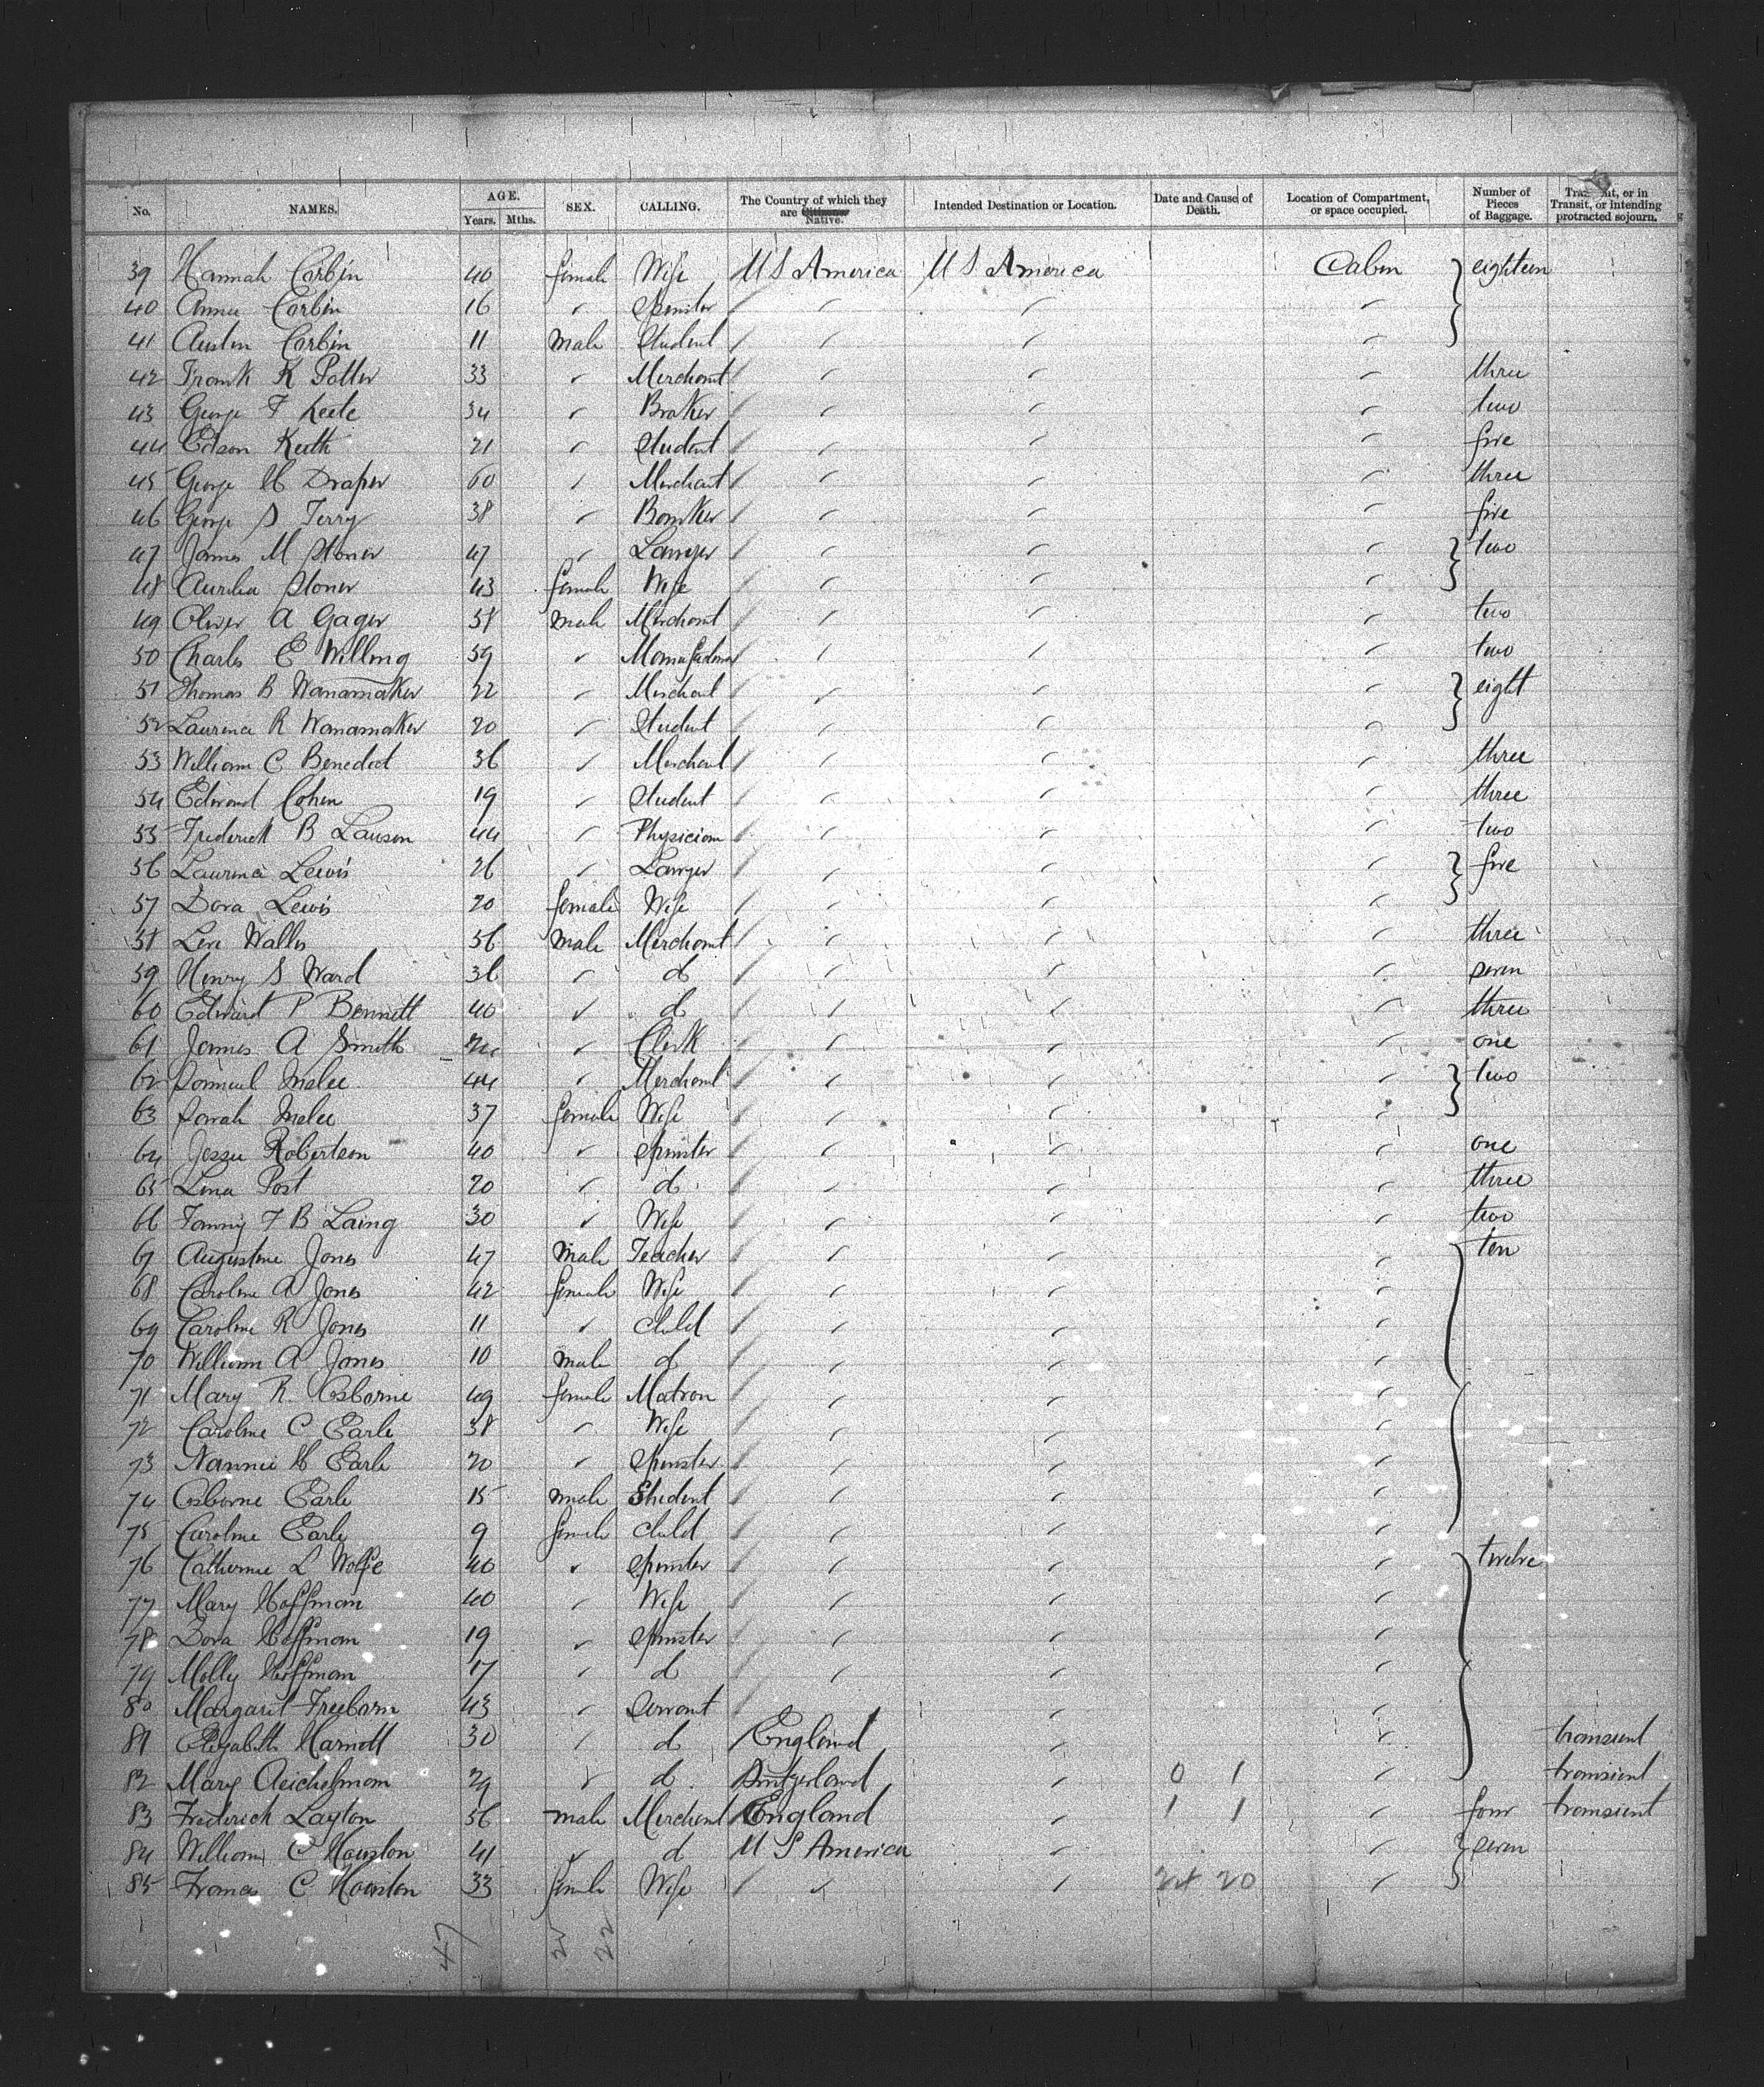 No. NAMES. AGE. Years. Mths. SEX. CALLING. The Country of which they are Citizens Native. Intended Destination or Location. Date and Cause of Death. Location of Compartment, or space occupied. Number of Pieces of Baggage. Transient, or in Transit, or intending protracted sojourn.
39 Hannah Corbin 40 female Wife U S America U S America Cabin } eighteen
40 Annie Corbin 16 ✓ Spinster / ✓ ✓ ✓
41 Austin Corbin 11 male Student / ✓ ✓ ✓
42 Frank K Potter 33 ✓ Merchant / ✓ ✓ ✓ three
43 George F 34 ✓ Broker / ✓ ✓ ✓ two
44 Edson Keith 21 ✓ Student / ✓ ✓ ✓ five
45 George H Draper 60 ✓ Merchant / ✓ ✓ ✓ three
46 George S Terry 38 ✓ Banker / ✓ ✓ ✓ five
47 James M Stoner 47 ✓ Lawyer / ✓ ✓ ✓ } two
48 Aurelia Stoner 43 female Wife / ✓ ✓ ✓
49 Oliver A Gager 58 male Merchant / ✓ ✓ ✓ two
50 Charles E Willing 59 ✓ Manufacturer / ✓ ✓ ✓ two
51 Thomas B Wanamaker 22 ✓ Merchant / ✓ ✓ ✓ } eight
52 R Wanamaker 20 ✓ Student / ✓ ✓ ✓
53 William C Benedict 36 ✓ Merchant / ✓ ✓ ✓ three
54 Edward Cohen 19 ✓ Student / ✓ ✓ ✓ three
55 Frederick B Lawson 44 ✓ Physician / ✓ ✓ ✓ two
56 Lewis 26 ✓ Lawyer / ✓ ✓ ✓ } five
57 Dora Lewis 20 female Wife / ✓ ✓ ✓
58 Levi 56 male Merchant / ✓ ✓ ✓ three
59 Henry S Ward 36 ✓ d / ✓ ✓ ✓ seven
60 Edward P Bennett 40 ✓ d / ✓ ✓ ✓ three
61 James A Smith ✓ Clerk / ✓ ✓ ✓ one
62 Samuel 44 ✓ Merchant / ✓ ✓ ✓ } two
63 Sarah 37 female Wife / ✓ ✓ ✓
64 Jessie Robertson 40 ✓ Spinster / ✓ ✓ ✓ one
65 Lina Post 20 ✓ d / ✓ ✓ ✓ three
66 Fanny F B Laing 30 ✓ Wife / ✓ ✓ ✓ two
67 Augustine Jones 47 male Teacher / ✓ ✓ ✓ } ten
68 Caroline A Jones 42 female Wife / ✓ ✓ ✓
69 Caroline R Jones 11 ✓ Child / ✓ ✓ ✓
70 William A Jones 10 male d / ✓ ✓ ✓
71 Mary R. Osborne 49 female Matron / ✓ ✓ ✓
72 Caroline C Earle 38 ✓ Wife / ✓ ✓ ✓
73 Nannie H Earle 20 ✓ Spinster / ✓ ✓ ✓
74 Osborne Earle 15 male Student / ✓ ✓ ✓
75 Caroline Earle 9 female Child / ✓ ✓ ✓
76 Catherine L Wolfe 40 ✓ Spinster / ✓ ✓ ✓ } twelve
77 Mary Hoffman 40 ✓ Wife / ✓ ✓ ✓
78 Dora Hoffman 19 ✓ Spinster / ✓ ✓ ✓
79 Molly Hoffman 17 ✓ d / ✓ ✓ ✓
80 Margaret Freeborn 43 ✓ Servant / ✓ ✓
81 Elizabeth Harnott 30 ✓ d England ✓ ✓ transient
82 Mary Aeichelmann 29 ✓ d. Switzerland ✓ 0 1 ✓ transient
83 Frederick Layton 56 male Merchant England ✓ 1 1 ✓ four transient
84 William C Houston 41 ✓ d U S America ✓ ✓ } seven
85 Frances C Houston 33 female Wife / ✓ ✓ 24 20 ✓
47 22